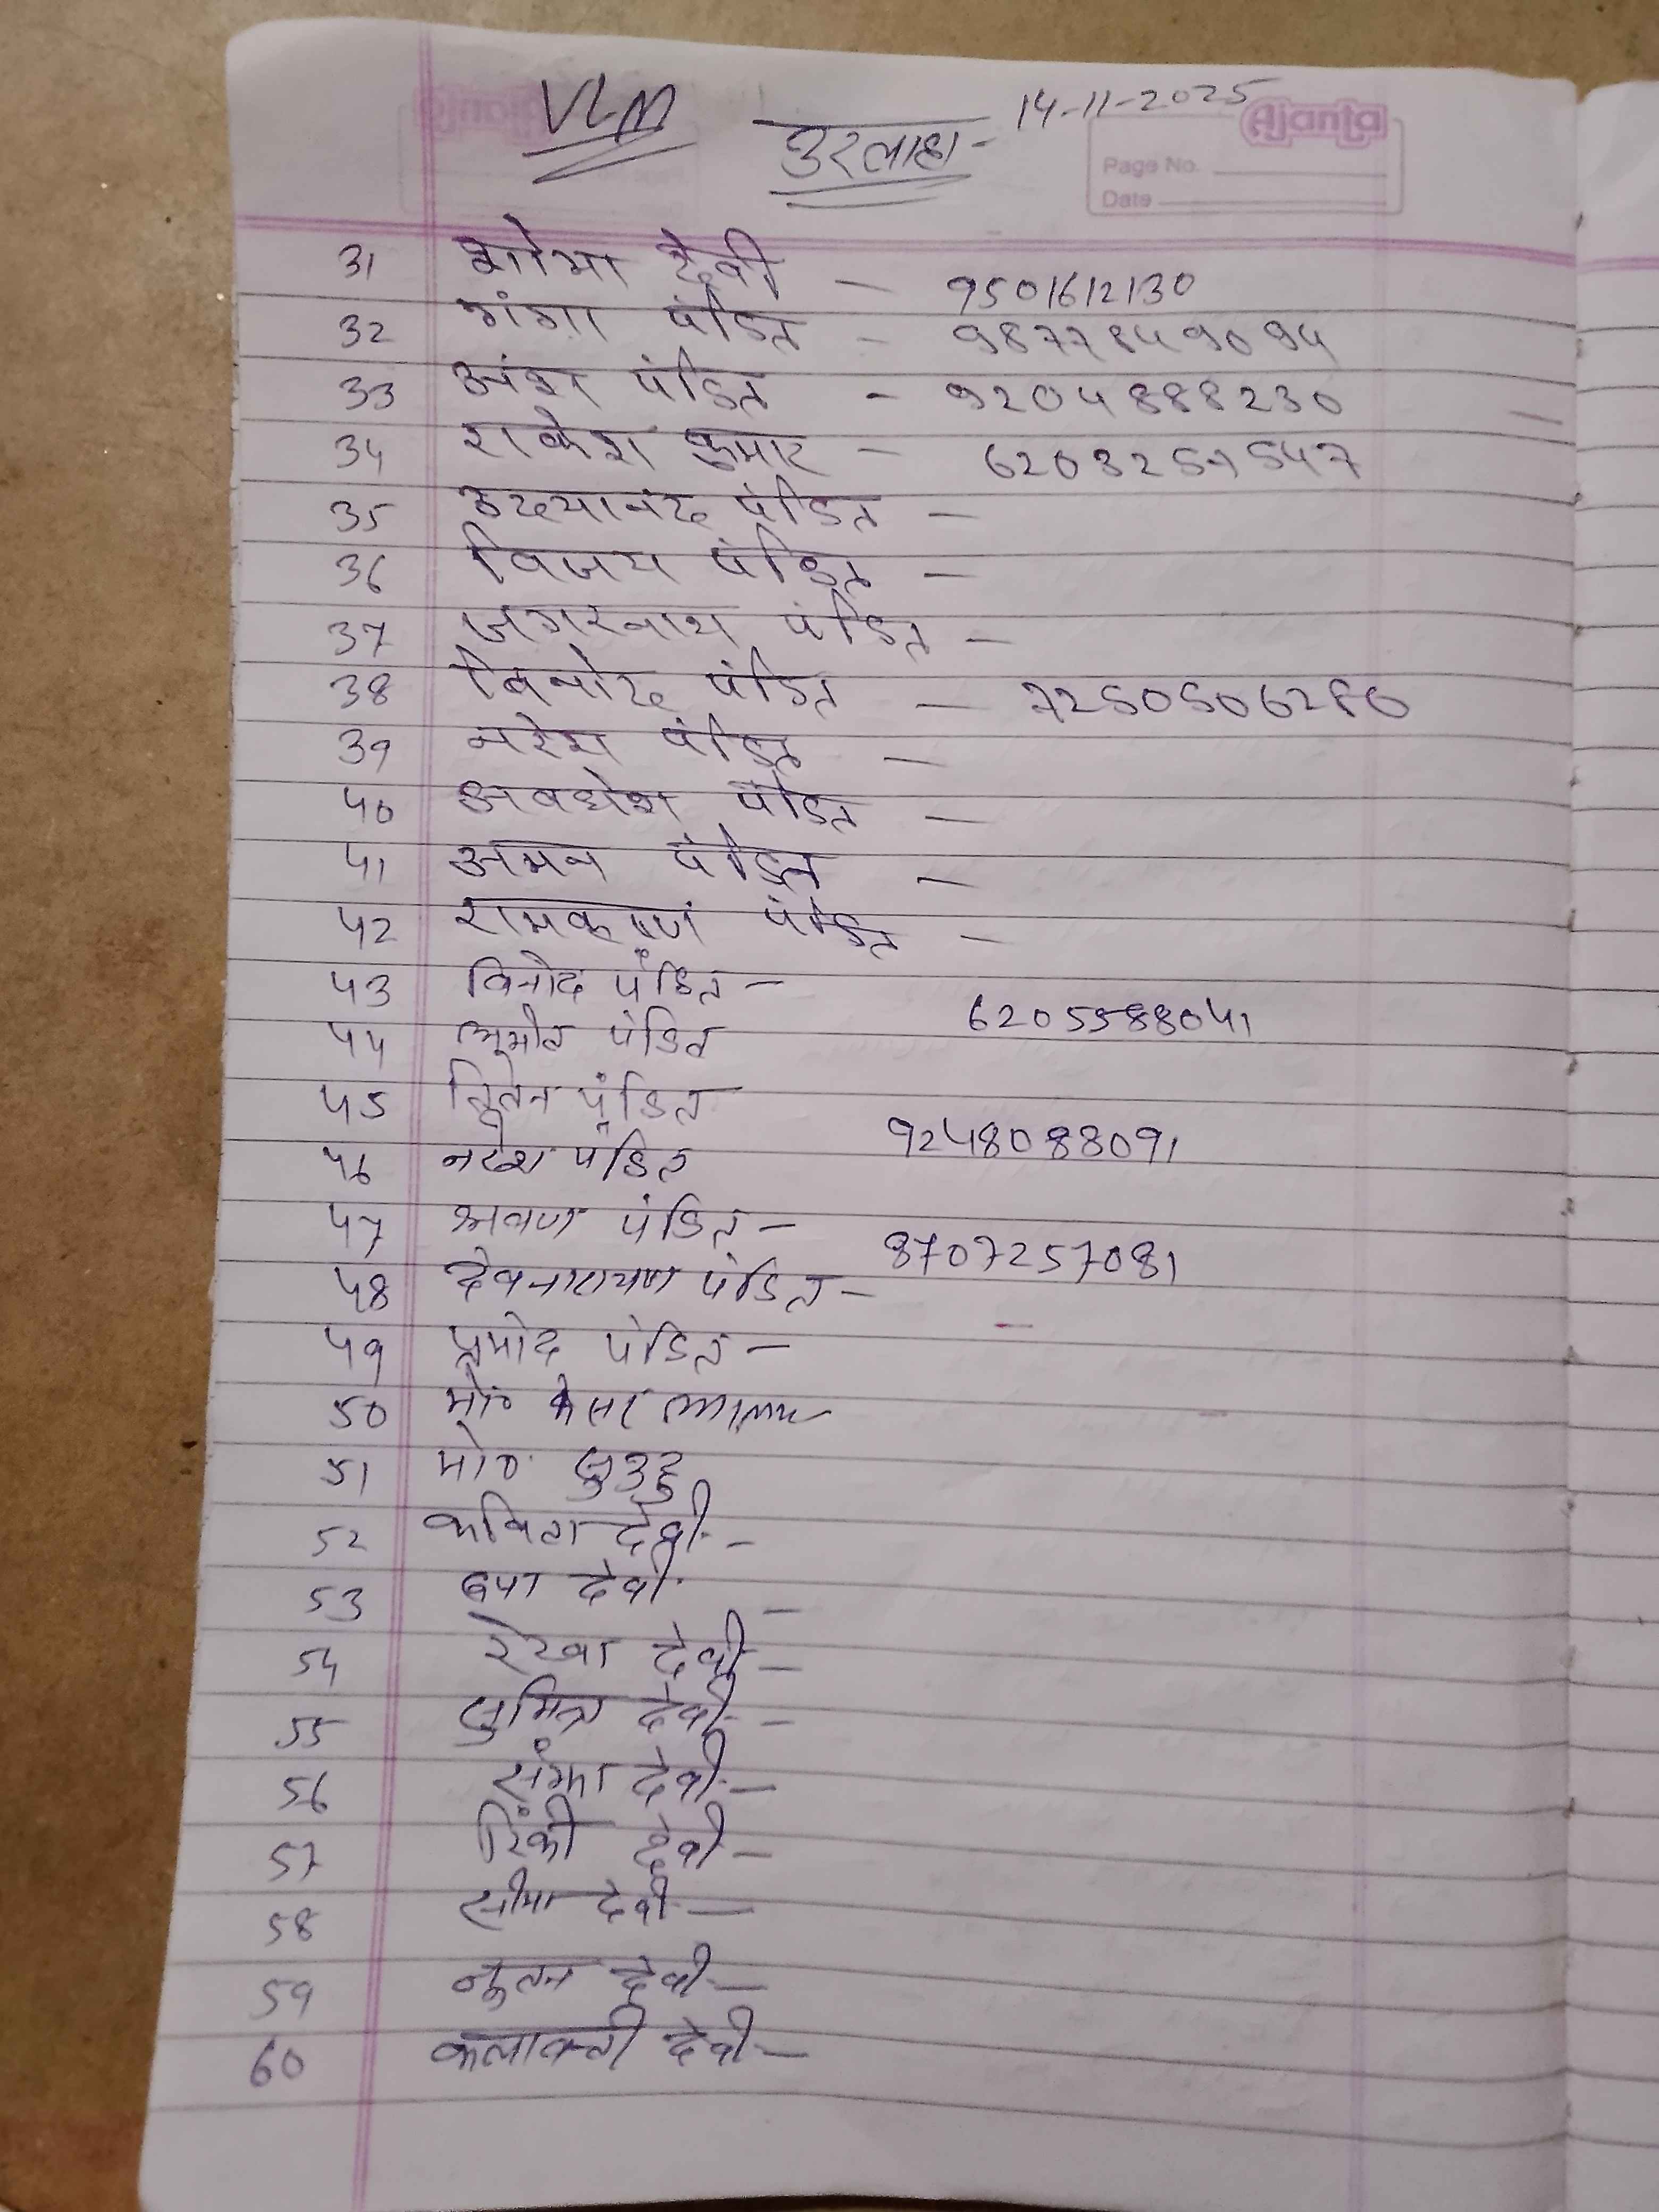 VLM उरलाहा - 14-11-2025
Ajanta
Page No.
Date
31 शोभा देवी - 9501612130
32 गंगा पंडित - 9877849094
33 अंश पंडित - 9204888230
34 राकेश कुमार - 6203251547
35 उदयानंद पंडित -
36 विजय पंडित -
37 जगरनाथ पंडित -
38 विनोद पंडित - 7250506280
39 नरेश पंडित -
40 अवधेश पंडित -
41 अमन पंडित -
42 रामकृष्ण पंडित -
43 विनोद पंडित -
44 पंडित 6205588041
45 पंडित
46 नरेश पंडित 9248088091
47 श्रवण पंडित -
48 देवनारायण पंडित - 8707257081
49 प्रमोद पंडित -
50 मो०
51 मो०
52 कविता देवी -
53 देवी -
54 रेखा देवी -
55 सुमित्रा देवी -
56 संझा देवी -
57 रिंकी देवी -
58 सीमा देवी -
59 नुतन देवी -
60 कलावती देवी -